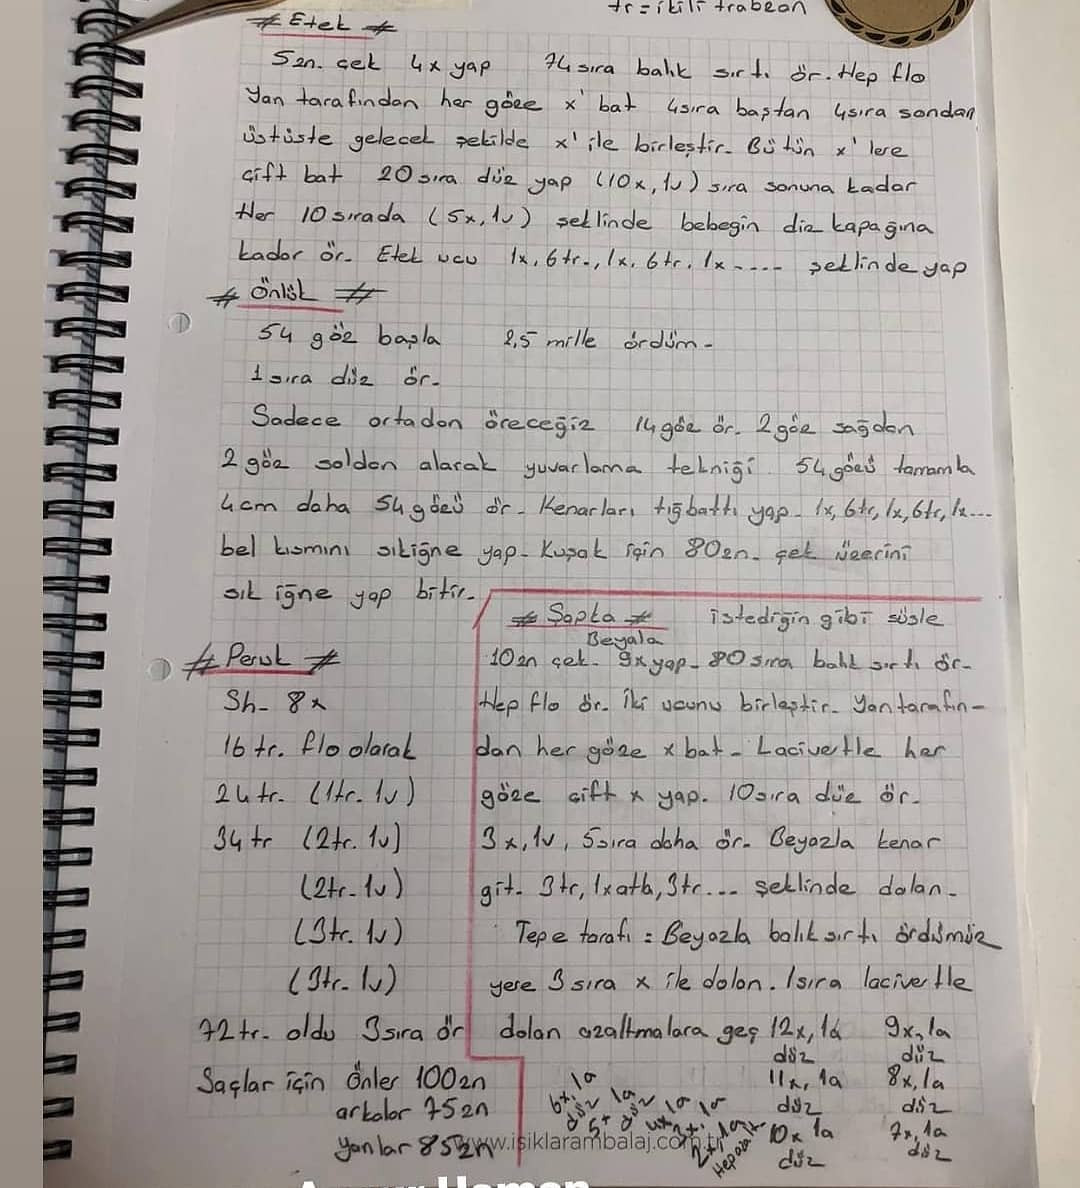 tr = ikili trabzan
# Etek #
5zn. çek 4x yap 74 sıra balık sırtı ör. Hep flo
Yan tarafından her göze x' bat 4sıra baştan 4sıra sondan
üstüste gelecek şekilde x' ile birleştir. Bütün x' lere
çift bat 20 sıra düz yap (10x, 1v) sıra sonuna kadar
Her 10 sırada (5x, 1v) şeklinde bebeğin diz kapağına
kadar ör. Etek ucu 1x, 6tr., 1x, 6tr, 1x ..... şeklinde yap
# Önlük #
54 göz başla 2,5 mille ördüm.
1 sıra düz ör.
Sadece ortadan öreceğiz 14 göz ör. 2 göz sağdan
2 göz soldan alarak yuvarlama tekniği. 54 gözü tamamla
4cm daha 54 gözü ör. Kenarları tığbattı yap. 1x, 6tr, 1x, 6tr, 1x...
bel kısmını sıkiğne yap. Kuşak için 80zn. çek üzerini
sık iğne yap bitir.
# Peruk #
Sh- 8x
16 tr. flo olarak
24 tr. (1tr. 1v)
34 tr (2tr. 1v)
(2tr. 1v)
(3tr. 1v)
(3tr. 1v)
72 tr. oldu 3sıra ör
Saçlar için Önler 100zn
arkalar 75zn
yanlar 85zn
# Şapka # istediğin gibi süsle
Beyazla
10zn çek. 9x yap. 80 sıra balık sırtı ör.
Hep flo ör. İki ucunu birleştir. Yan tarafın-
dan her göze x bat. Lacivertle her
göze çift x yap. 10sıra düz ör.
3x, 1v, 5sıra daha ör. Beyazla kenar
git. 3tr, 1x atla, 3tr... şeklinde dolan.
Tepe tarafı : Beyazla balık sırtı ördüğümüz
yere 3 sıra x ile dolan. 1sıra lacivertle
dolan azaltmalara geç 12x, 1a 9x, 1a
düz düz
11x, 1a 8x, 1a
düz düz
10x 1a 7x, 1a
düz düz
6x, 1a
düz
5x 1a
düz
www.isiklarambalaj.com.tr